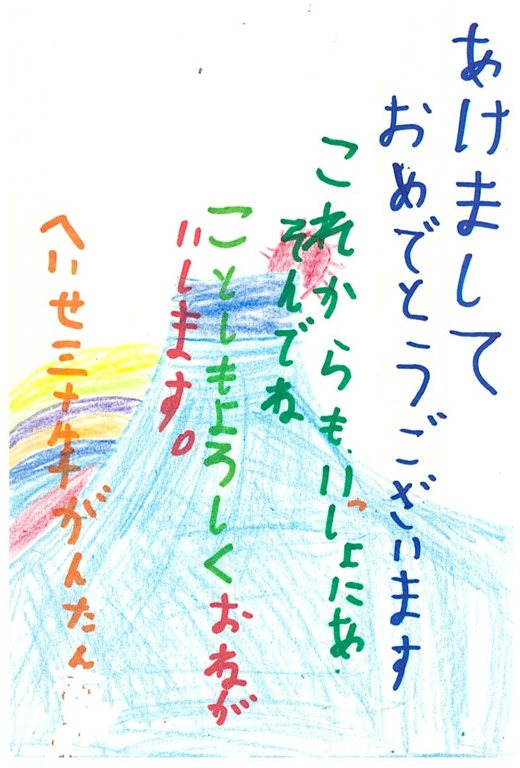 あけまして
おめでとうございます
これからも、いっしょにあ
そんでね
ことしもよろしくおねが
いします。
へいせ三十年がんたん